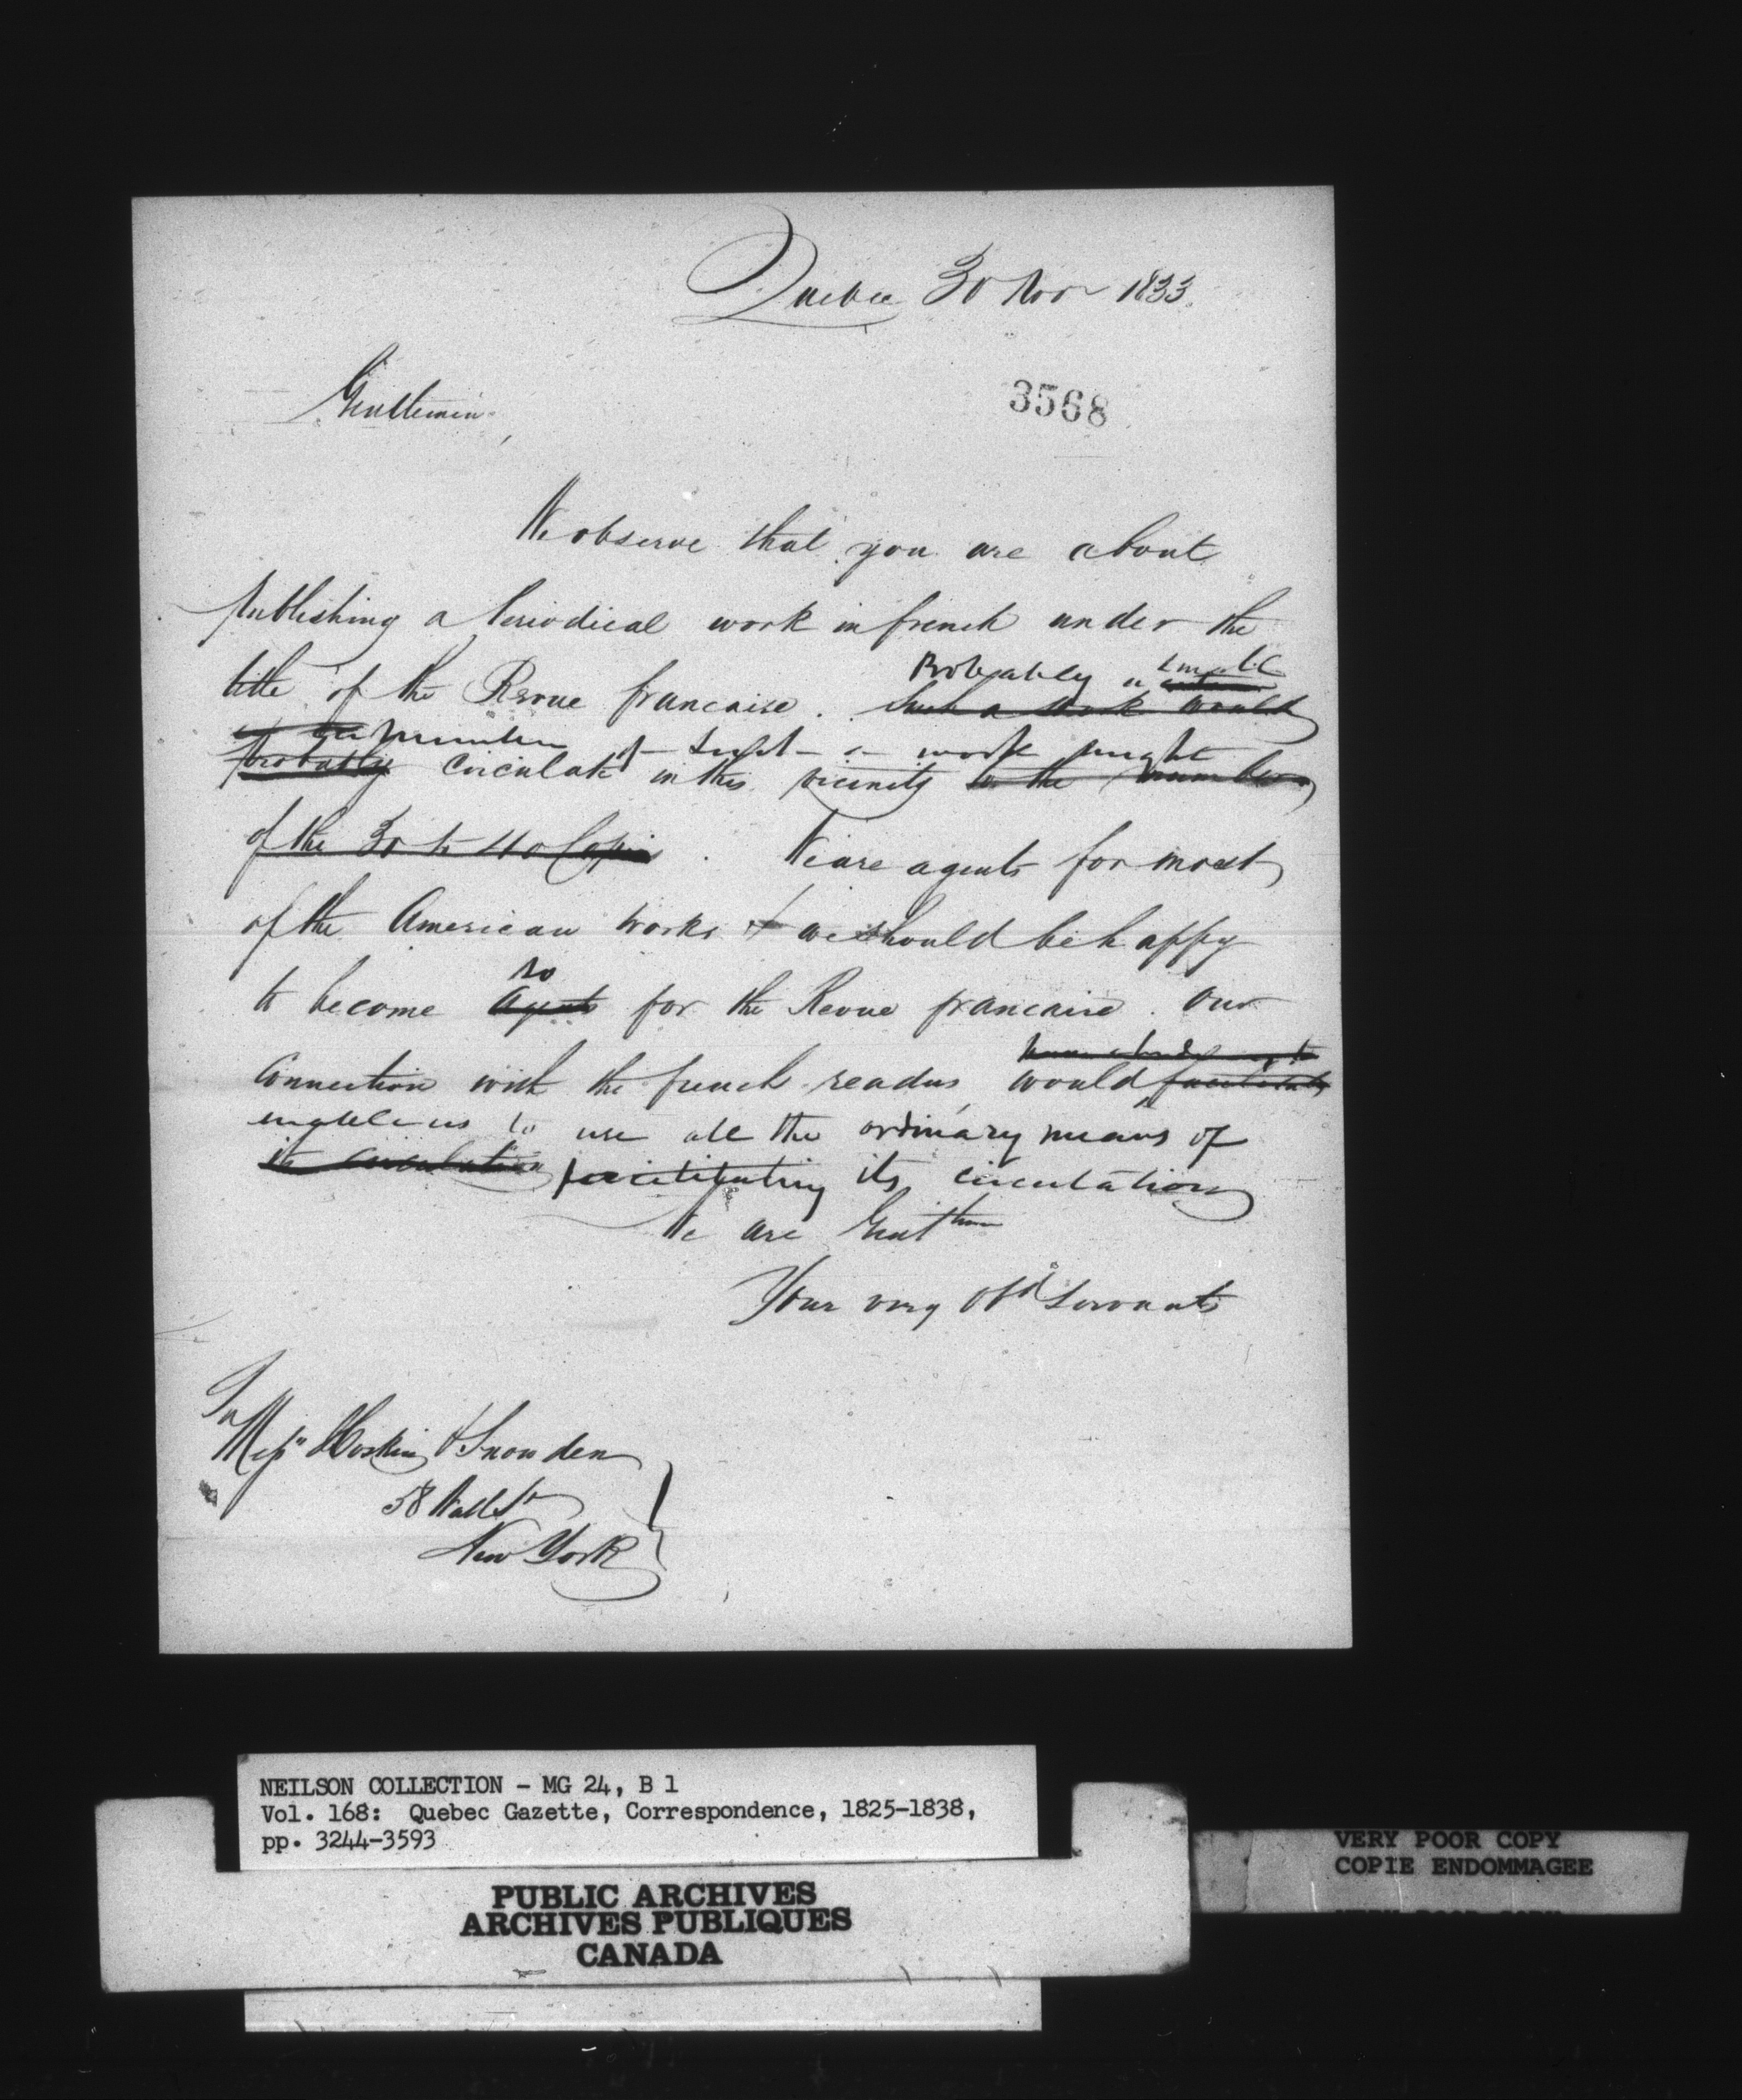 Quebec 30 Nov 1833.
3568
Gentlemen,
We observe that you are about
publishing a Periodical work in french under the
title of the Revue francaise.
Probably a small
Such a work would
number of such a work might
probably circulate in this vicinity to the number
of the 30 to 40 Copies. We are agents for most
of the American works & we should be happy
so
to become Agents for the Revue francaise. Our
Connection with the french readers, would facilitate
enable us to use all the ordinary means of
its circulation facilitating its circulation
We are Gentmn
Your very Obd Servants
To
Messrs Hoskin & Snowden
58 Wall St
New York
NEILSON COLLECTION - MG 24, B 1
Vol. 168: Quebec Gazette, Correspondence, 1825-1838,
pp. 3244-3593
PUBLIC ARCHIVES
ARCHIVES PUBLIQUES
CANADA
VERY POOR COPY
COPIE ENDOMMAGEE